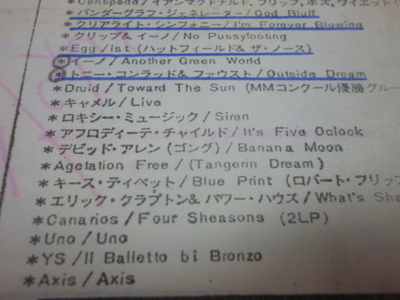 *Centipede/イアンマクドナルド, フリップ, ボズ, ワイエット
*バンダーグラフ・ジェネレーター/God Bluff
*クリアライト・シンフォニー/I'm Forever Blowing
*クリップ& イーノ/No Pussyfooting
*Egg/ist (ハットフィールド& ザ・ノース)
*イーノ/Another Green World
*トニー・コンラッド& ファウスト/Outside Dream
*Druid/Toward The Sun (MMコンクール優勝グルー
*キャメル/Live
*ロキシー・ミュージック/Siren
*アフロディーテ・チャイルド/It's Five Oclock
*デビッド・アレン(ゴング)/Banana Moon
*Agetation Free/(Tangerin Dream)
*キース・ティペット/Blue Print (ロバート・フリップ
*エリック・クラプトン& パワー・ハウス/What's Sha
*Canarios/Four Sheasons (2LP)
*Uno/Uno
*YS/Il Balletto bi Bronzo
*Axis/Axis